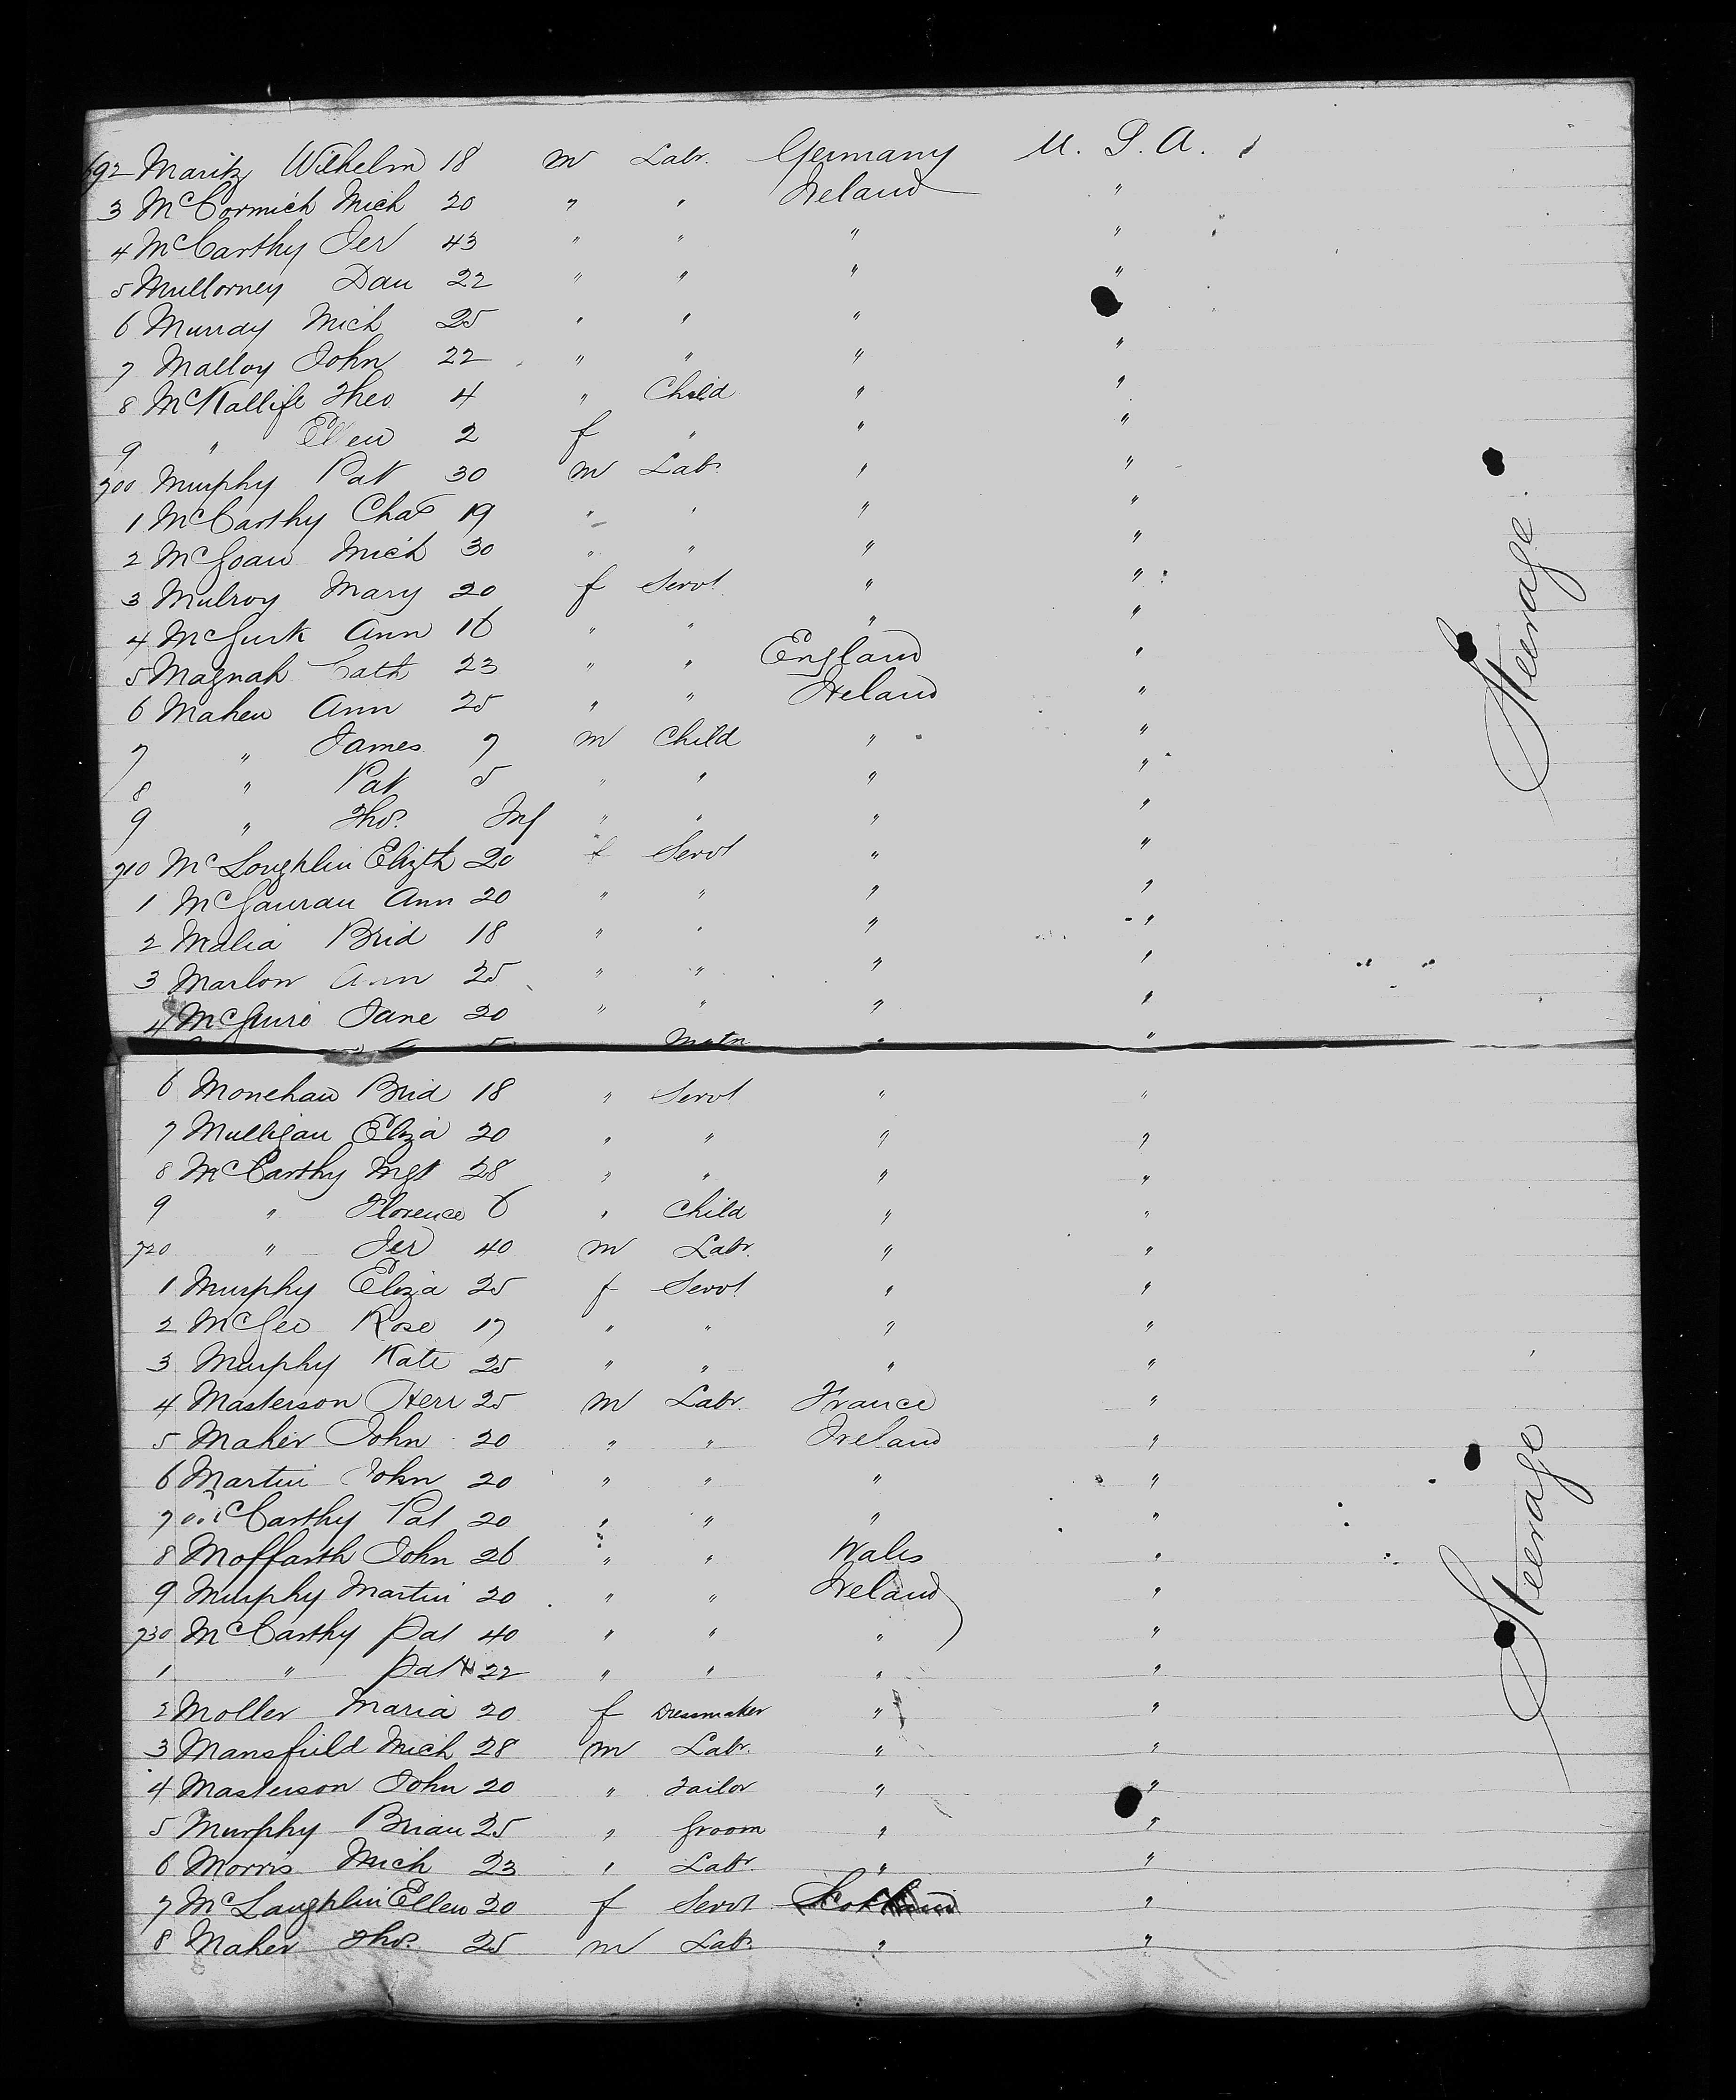 692 Maritz Wilhelm 18 m Labr. Germany U. S. A.
3 McCormick Mich 20 " " Ireland "
4 McCarthy Jer 43 " " " "
5 Mullorney Dan 22 " " " "
6 Murray Mich 25 " " "
7 Malloy John 22 " " " "
8 McKallife Theo 4 " Child " "
9 " Ellen 2 f " " "
700 Murphy Pat 30 m Labr. " "
1 McCarthy Chas 19 " " " "
2 McGoan Mich 30 " " " "
3 Mulroy Mary 20 f Servt " "
4 McGurk Ann 16 " " " "
5 Magnah Cath 23 " " England "
6 Maheu Ann 25 " " Ireland "
7 " James 7 m Child " "
8 " Pat 5 " " " "
9 " Thos. Inf " " " "
710 McLoughlin Elizth 20 f Servt " "
1 McGaurau Ann 20 " " " "
2 Malia Brid 18 " " " "
3 Marlow Ann 25 " " " "
4 McGuire Jane 20 " " " "
Matn " "
6 Monehan Brid 18 " Servt " "
7 Mulligan Eliza 20 " " " "
8 McCarthy Mgt 28 " " " "
9 " Florence 6 " Child " "
720 " Jer 40 m Labr. " "
1 Murphy Eliza 25 f Servt " "
2 McGee Rose 17 " " " "
3 Murphy Kate 25 " " " "
4 Masterson Herr 25 m Labr. France "
5 Maher John 20 " " Ireland "
6 Martin John 20 " " " "
7 McCarthy Pat 20 " " " "
8 Moffarth John 26 " " Wales "
9 Murphy Martin 20 " " Ireland "
730 McCarthy Pat 40 " " " "
1 " Pat 22 " " " "
2 Moller Maria 20 f Dressmaker " "
3 Mansfield Mich 28 m Labr. " "
4 Masterson John 20 " Tailor " "
5 Murphy Brian 25 " Groom " "
6 Morris Mich 23 " Labr. " "
7 McLaughlin Ellen 20 f Servt Scotland "
8 Maher Thos. 25 m Labr. " "
Steerage.
Steerage